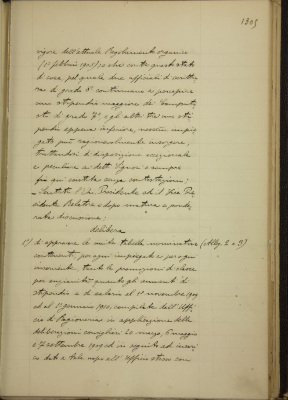 1305
vigore dell'attuale Regolamento organico
(1° febbraio 1905) ed che contro questo stato
di cose, pel quale due ufficiali di
di grado 6° continuano a percepire
uno stipendio maggiore dei
di grado 7°, e gli altri tre uno sti
pendio appena inferiore, nessun impie
gato può ragionevolmente insorgere,
trattandosi di disposizione eccezionale
e peculiare ai detti Signori e sempre
fin qui senza contestazione;
Sentito l' Presidente ed il Vice Pre
sidente Relatore e dopo matura e ponde
rata discussione;
delibera
1°) di approvare le unite tabelle nominative (Alleg. 2 a 9)
contenenti, per ogni impiegato e per ogni
inserviente, tanto le promozioni di classe
per anzianità quanto gli aumenti di
stipendio e di salario al 1° novembre 1909
ed al 1° gennaio 1910, compilate dall'Uffi
cio di Ragioneria in applicazione delle
deliberazioni consigliari 20 marzo, 8 maggio
e 17 settembre 1909 ed in seguito ad incari
co dato a tale uopo all'Ufficio stesso con